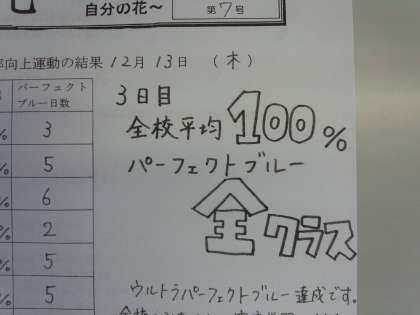 自分の花～
第7号
向上運動の結果 12月13日 (木)
パーフェクト
ブルー日数
% 3
% 5
% 6
% 2
% 5
% 5
3日目
全校平均 100%
パーフェクトブルー
全クラス
ウルトラパーフェクトブルー達成です。